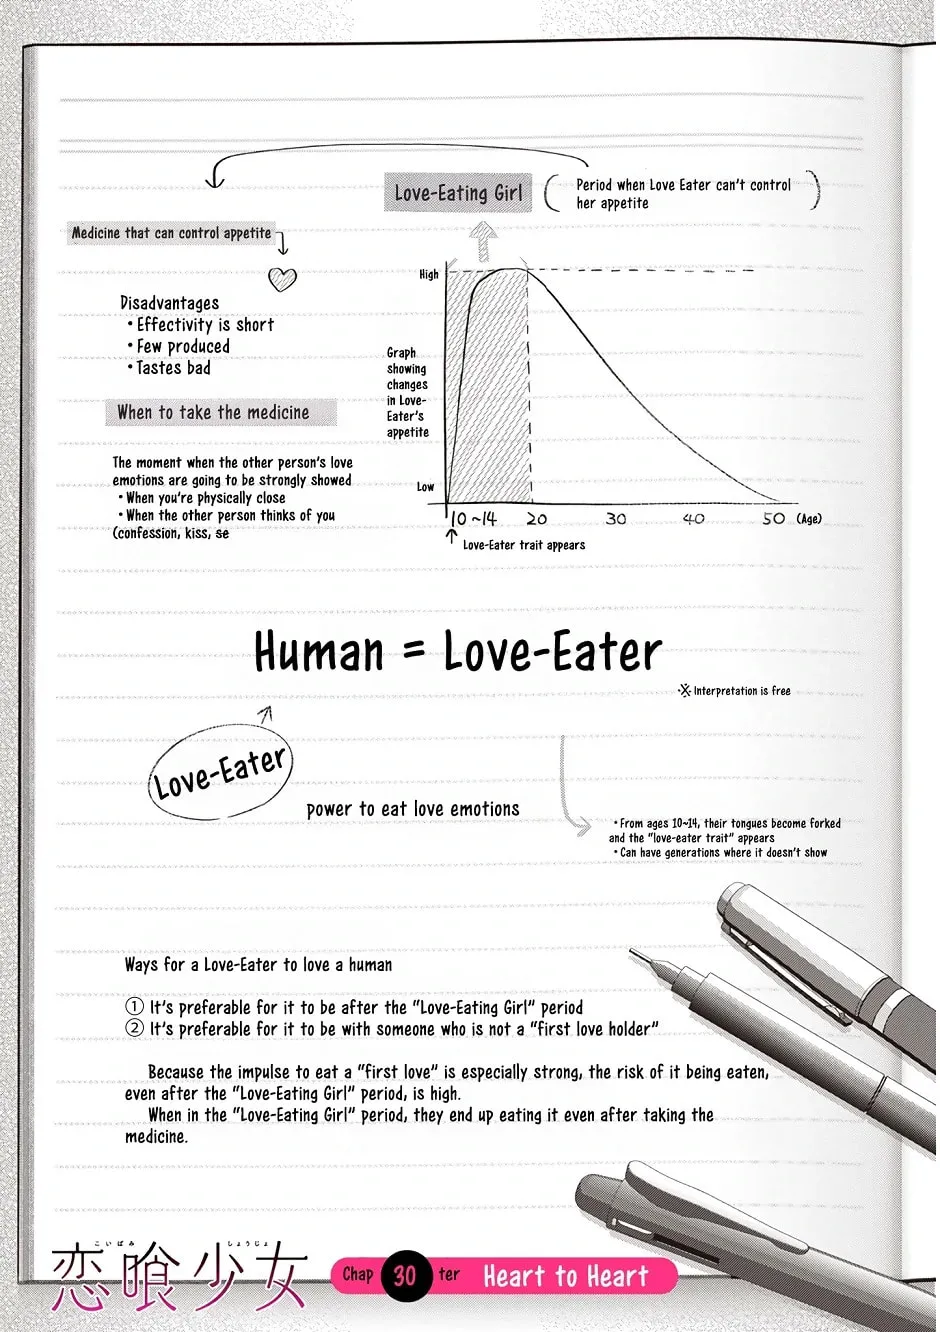 Love-Eating Girl
( Period when Love Eater can't control
her appetite )
Medicine that can control appetite
Disadvantages
・Effectivity is short
・Few produced
・Tastes bad
When to take the medicine
The moment when the other person's love
emotions are going to be strongly showed
・When you're physically close
・When the other person thinks of you
(confession, kiss, se
High
Graph
showing
changes
in Love-
Eater's
appetite
Low
10 ~14 20 30 40 50 (Age)
↑ Love-Eater trait appears
Human = Love-Eater
※ Interpretation is free
Love-Eater
power to eat love emotions
・From ages 10~14, their tongues become forked
and the "love-eater trait" appears
・Can have generations where it doesn't show
Ways for a Love-Eater to love a human
① It's preferable for it to be after the "Love-Eating Girl" period
② It's preferable for it to be with someone who is not a "first love holder"
Because the impulse to eat a "first love" is especially strong, the risk of it being eaten,
even after the "Love-Eating Girl" period, is high.
When in the "Love-Eating Girl" period, they end up eating it even after taking the
medicine.
こいばみ しょうじょ
恋喰少女
Chap 30 ter Heart to Heart